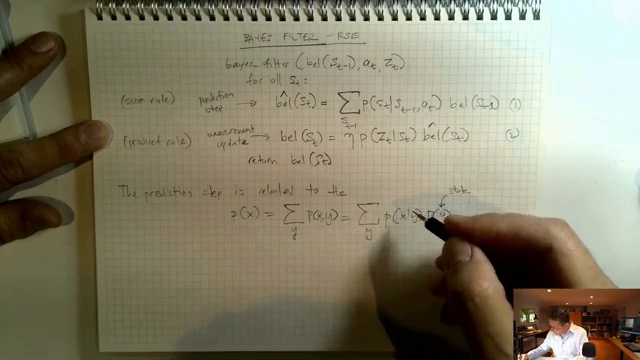 BAYES FILTER - RSE
bayesian filter (bel(S_{t-1}), a_t, Z_t)
for all S_t:
(sum rule) prediction step → bel̂(S_t) = ∑_{S_{t-1}} p(S_t | S_{t-1}, a_t) bel(S_{t-1}) (1)
(product rule) measurement update → bel(S_t) = η p(Z_t | S_t) bel̂(S_t) (2)
return bel(S_t)
The prediction step is related to the state
p(x) = ∑_y p(x,y) = ∑_y p(x|y) p(y)